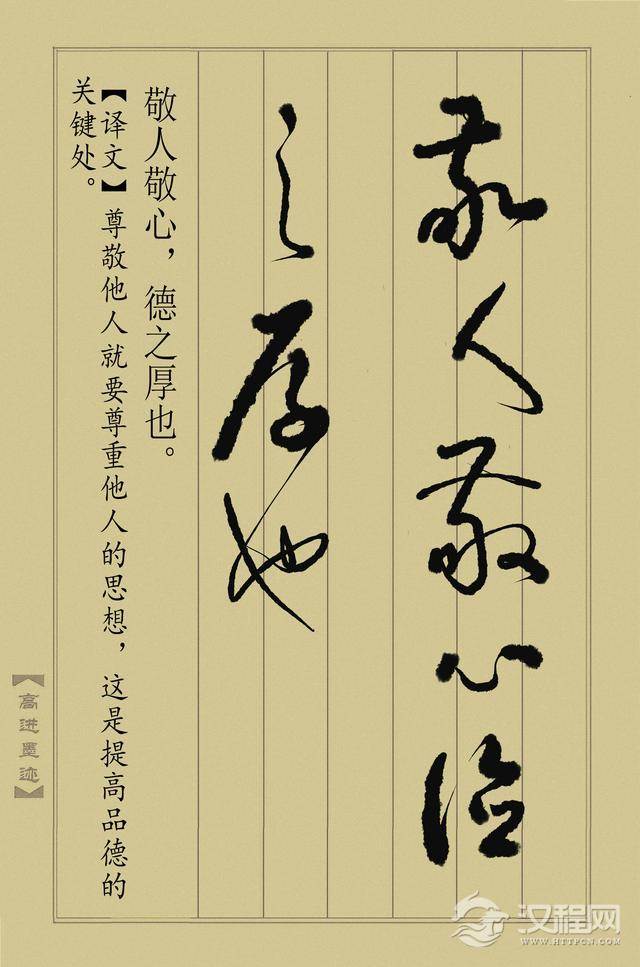 敬人敬心德
之厚也
敬人敬心，德之厚也。
【译文】尊敬他人就要尊重他人的思想，这是提高品德的
关键处。
【高进墨迹】
汉程网
WWW.HTTPCN.COM